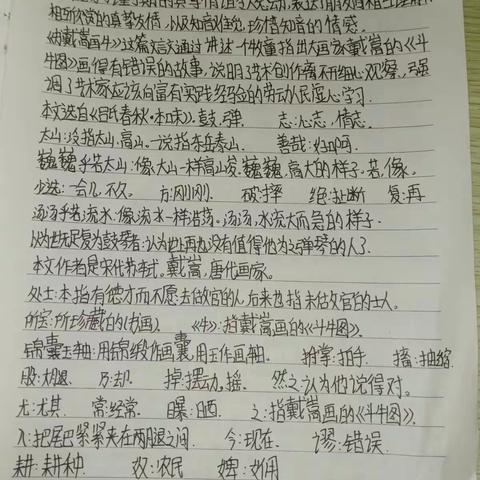 相互欣赏的真挚友情,以及知音难觅,珍惜知音的情感。
《书戴嵩画牛》这篇短文通过讲述一个牧童指出大画家戴嵩的《斗
牛图》画得有错误的故事,说明了艺术创作离不开细心观察,强
调了艺术家应该向富有实践经验的劳动人民虚心学习.
本文选自《吕氏春秋·本味》.鼓:弹. 志:心志,情志.
太山:泛指大山,高山.一说指东岳泰山. 善哉:好啊.
巍巍乎若太山:像大山一样高峻.巍巍,高大的样子.若,像.
少选:一会儿,不久. 方:刚刚. 破:摔 绝:扯断 复:再
汤汤乎若流水:像流水一样浩荡。汤汤,水流大而急的样子.
以为世无足复为鼓琴者:认为世上再也没有值得他为之弹琴的人了.
本文作者是宋代苏轼。戴嵩,唐代画家。
处士:本指有德才而不愿去做官的人,后来也指未做官的士人。
所宝:所珍藏的(书画). 《牛》:指戴嵩画的《斗牛图》.
锦囊玉轴:用锦缎作画囊,用玉作画轴. 拊掌:拍手. 搐:抽缩.
股:大腿. 乃:却. 掉:摆动,摇. 然之:认为他说得对.
尤:尤其. 常:经常. 曝:晒. 之:指戴嵩画的《斗牛图》.
入:把尾巴紧紧夹在两腿之间. 今:现在. 谬:错误.
耕:耕种. 奴:农民 婢:女佣